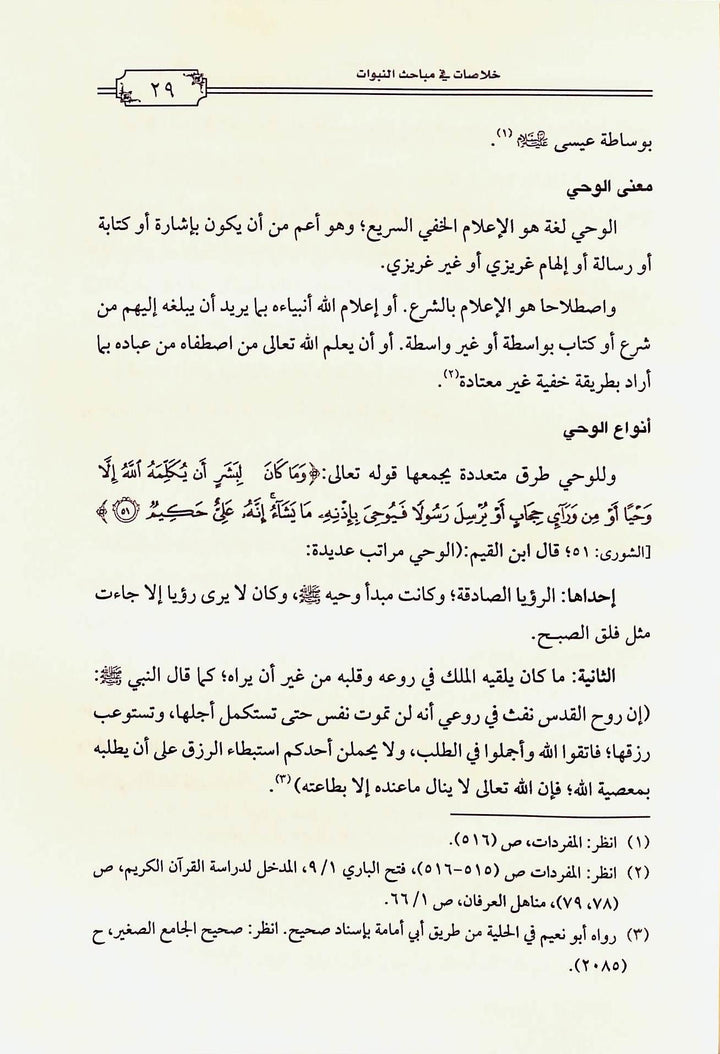 خلاصات في مباحث النبوات
٢٩
بوساطة عيسى ﵇(١).
معنى الوحي
الوحي لغة هو الإعلام الخفي السريع؛ وهو أعم من أن يكون بإشارة أو كتابة
أو رسالة أو إلهام غريزي أو غير غريزي.
واصطلاحا هو الإعلام بالشرع. أو إعلام الله أنبياءه بما يريد أن يبلغه إليهم من
شرع أو كتاب بواسطة أو غير واسطة. أو أن يعلم الله تعالى من اصطفاه من عباده بما
أراد بطريقة خفية غير معتادة(٢).
أنواع الوحي
وللوحي طرق متعددة يجمعها قوله تعالى:﴿وَمَا كَانَ لِبَشَرٍ أَن يُكَلِّمَهُ ٱللَّهُ إِلَّا
وَحْيًا أَوْ مِن وَرَآيِٕ حِجَابٍ أَوْ يُرْسِلَ رَسُولًا فَيُوحِىَ بِإِذْنِهِۦ مَا يَشَآءُ ۚ إِنَّهُۥ عَلِىٌّ حَكِيمٌ ۝٥١﴾
[الشورى: ٥١؛ قال ابن القيم:(الوحي مراتب عديدة:
إحداها: الرؤيا الصادقة؛ وكانت مبدأ وحيه ﷺ، وكان لا يرى رؤيا إلا جاءت
مثل فلق الصبح.
الثانية: ما كان يلقيه الملك في روعه وقلبه من غير أن يراه؛ كما قال النبي ﷺ:
(إن روح القدس نفث في روعي أنه لن تموت نفس حتى تستكمل أجلها، وتستوعب
رزقها؛ فاتقوا الله وأجملوا في الطلب، ولا يحملن أحدكم استبطاء الرزق على أن يطلبه
بمعصية الله؛ فإن الله تعالى لا ينال ماعنده إلا بطاعته)(٣).
(١) انظر: المفردات، ص (٥١٦).
(٢) انظر: المفردات ص (٥١٥-٥١٦)، فتح الباري ١/ ٩، المدخل لدراسة القرآن الكريم، ص
(٧٨، ٧٩)، مناهل العرفان، ص ١/ ٦٦.
(٣) رواه أبو نعيم في الحلية من طريق أبي أمامة بإسناد صحيح. انظر: صحيح الجامع الصغير، ح
(٢٠٨٥).